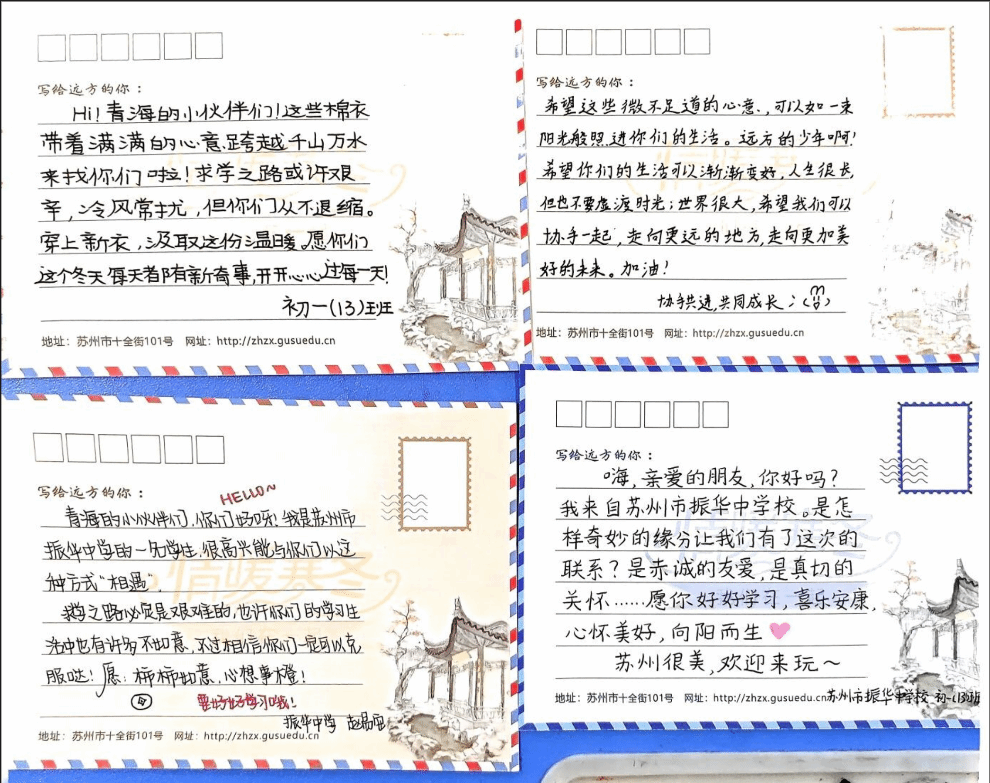 写给远方的你：
Hi！青海的小伙伴们！这些棉衣
带着满满的心意,跨越千山万水
来找你们啦！求学之路或许艰
辛，冷风常扰，但你们从不退缩。
穿上新衣，汲取这份温暖。愿你们
这个冬天每天都有新奇事,开开心心过每一天！
初一(13)班
地址：苏州市十全街101号 网址：http://zhzx.gusuedu.cn
写给远方的你：
希望这些微不足道的心意，可以如一束
阳光般照进你们的生活。远方的少年啊！
希望你们的生活可以渐渐变好,人生很长,
但也不要虚度时光；世界很大,希望我们可以
协手一起,走向更远的地方,走向更加美
好的未来。加油！
协手共进,共同成长；
地址：苏州市十全街101号 网址：http://zhzx.gusuedu.cn
写给远方的你：
HELLO~
青海的小伙伴们,你们好呀！我是苏州市
振华中学的一名学生,很高兴能与你们以这
种方式“相遇”
求学之路必定是艰难的,也许你们的学习生
活中也有许多不如意,不过相信你们一定可以克
服哒！愿：柿柿如意,心想事橙！
要好好学习哦！
振华中学
地址：苏州市十全街101号 网址：http://zhzx.gusuedu.cn
情暖寒冬
写给远方的你：
嗨,亲爱的朋友,你好吗？
我来自苏州市振华中学校。是怎
样奇妙的缘分让我们有了这次的
联系？是赤诚的友爱,是真切的
关怀……愿你好好学习,喜乐安康,
心怀美好,向阳而生
苏州很美,欢迎来玩～
地址：苏州市十全街101号 网址：http://zhzx.gusuedu.cn
苏州市振华中学校 初一(13)班